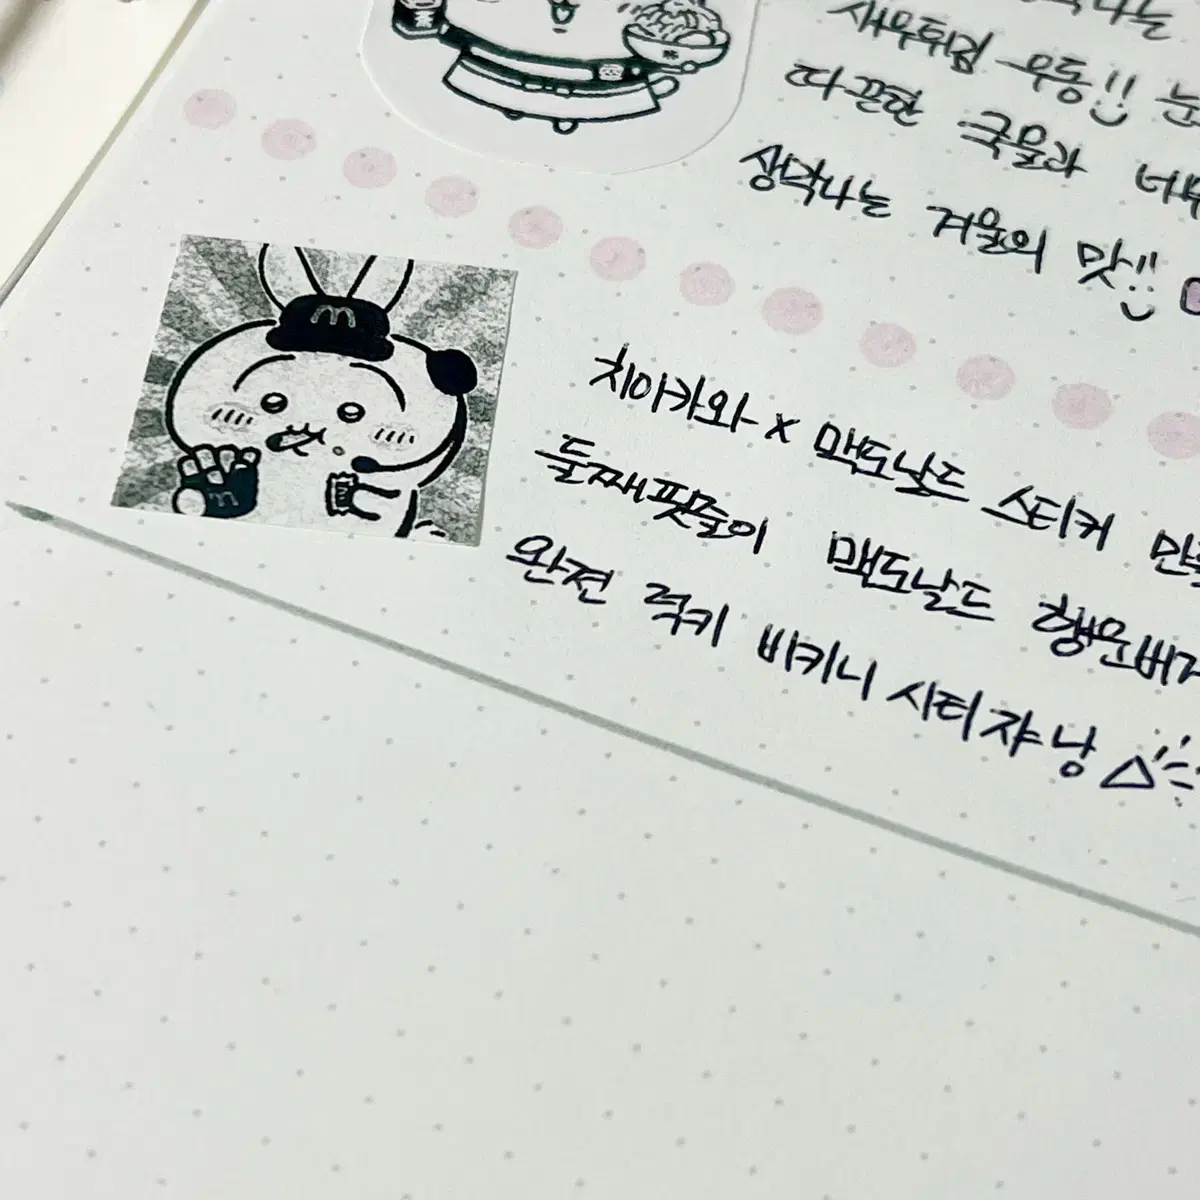 새우튀김 우동!! 눈
따끈한 국물과 너무
생각나는 겨울의 맛!!
m
치이카와 x 맥도날드 스티커 만
둘째핏줄이 맥도날드 행운버거
완전 럭키 비키니시티쟈낭
m